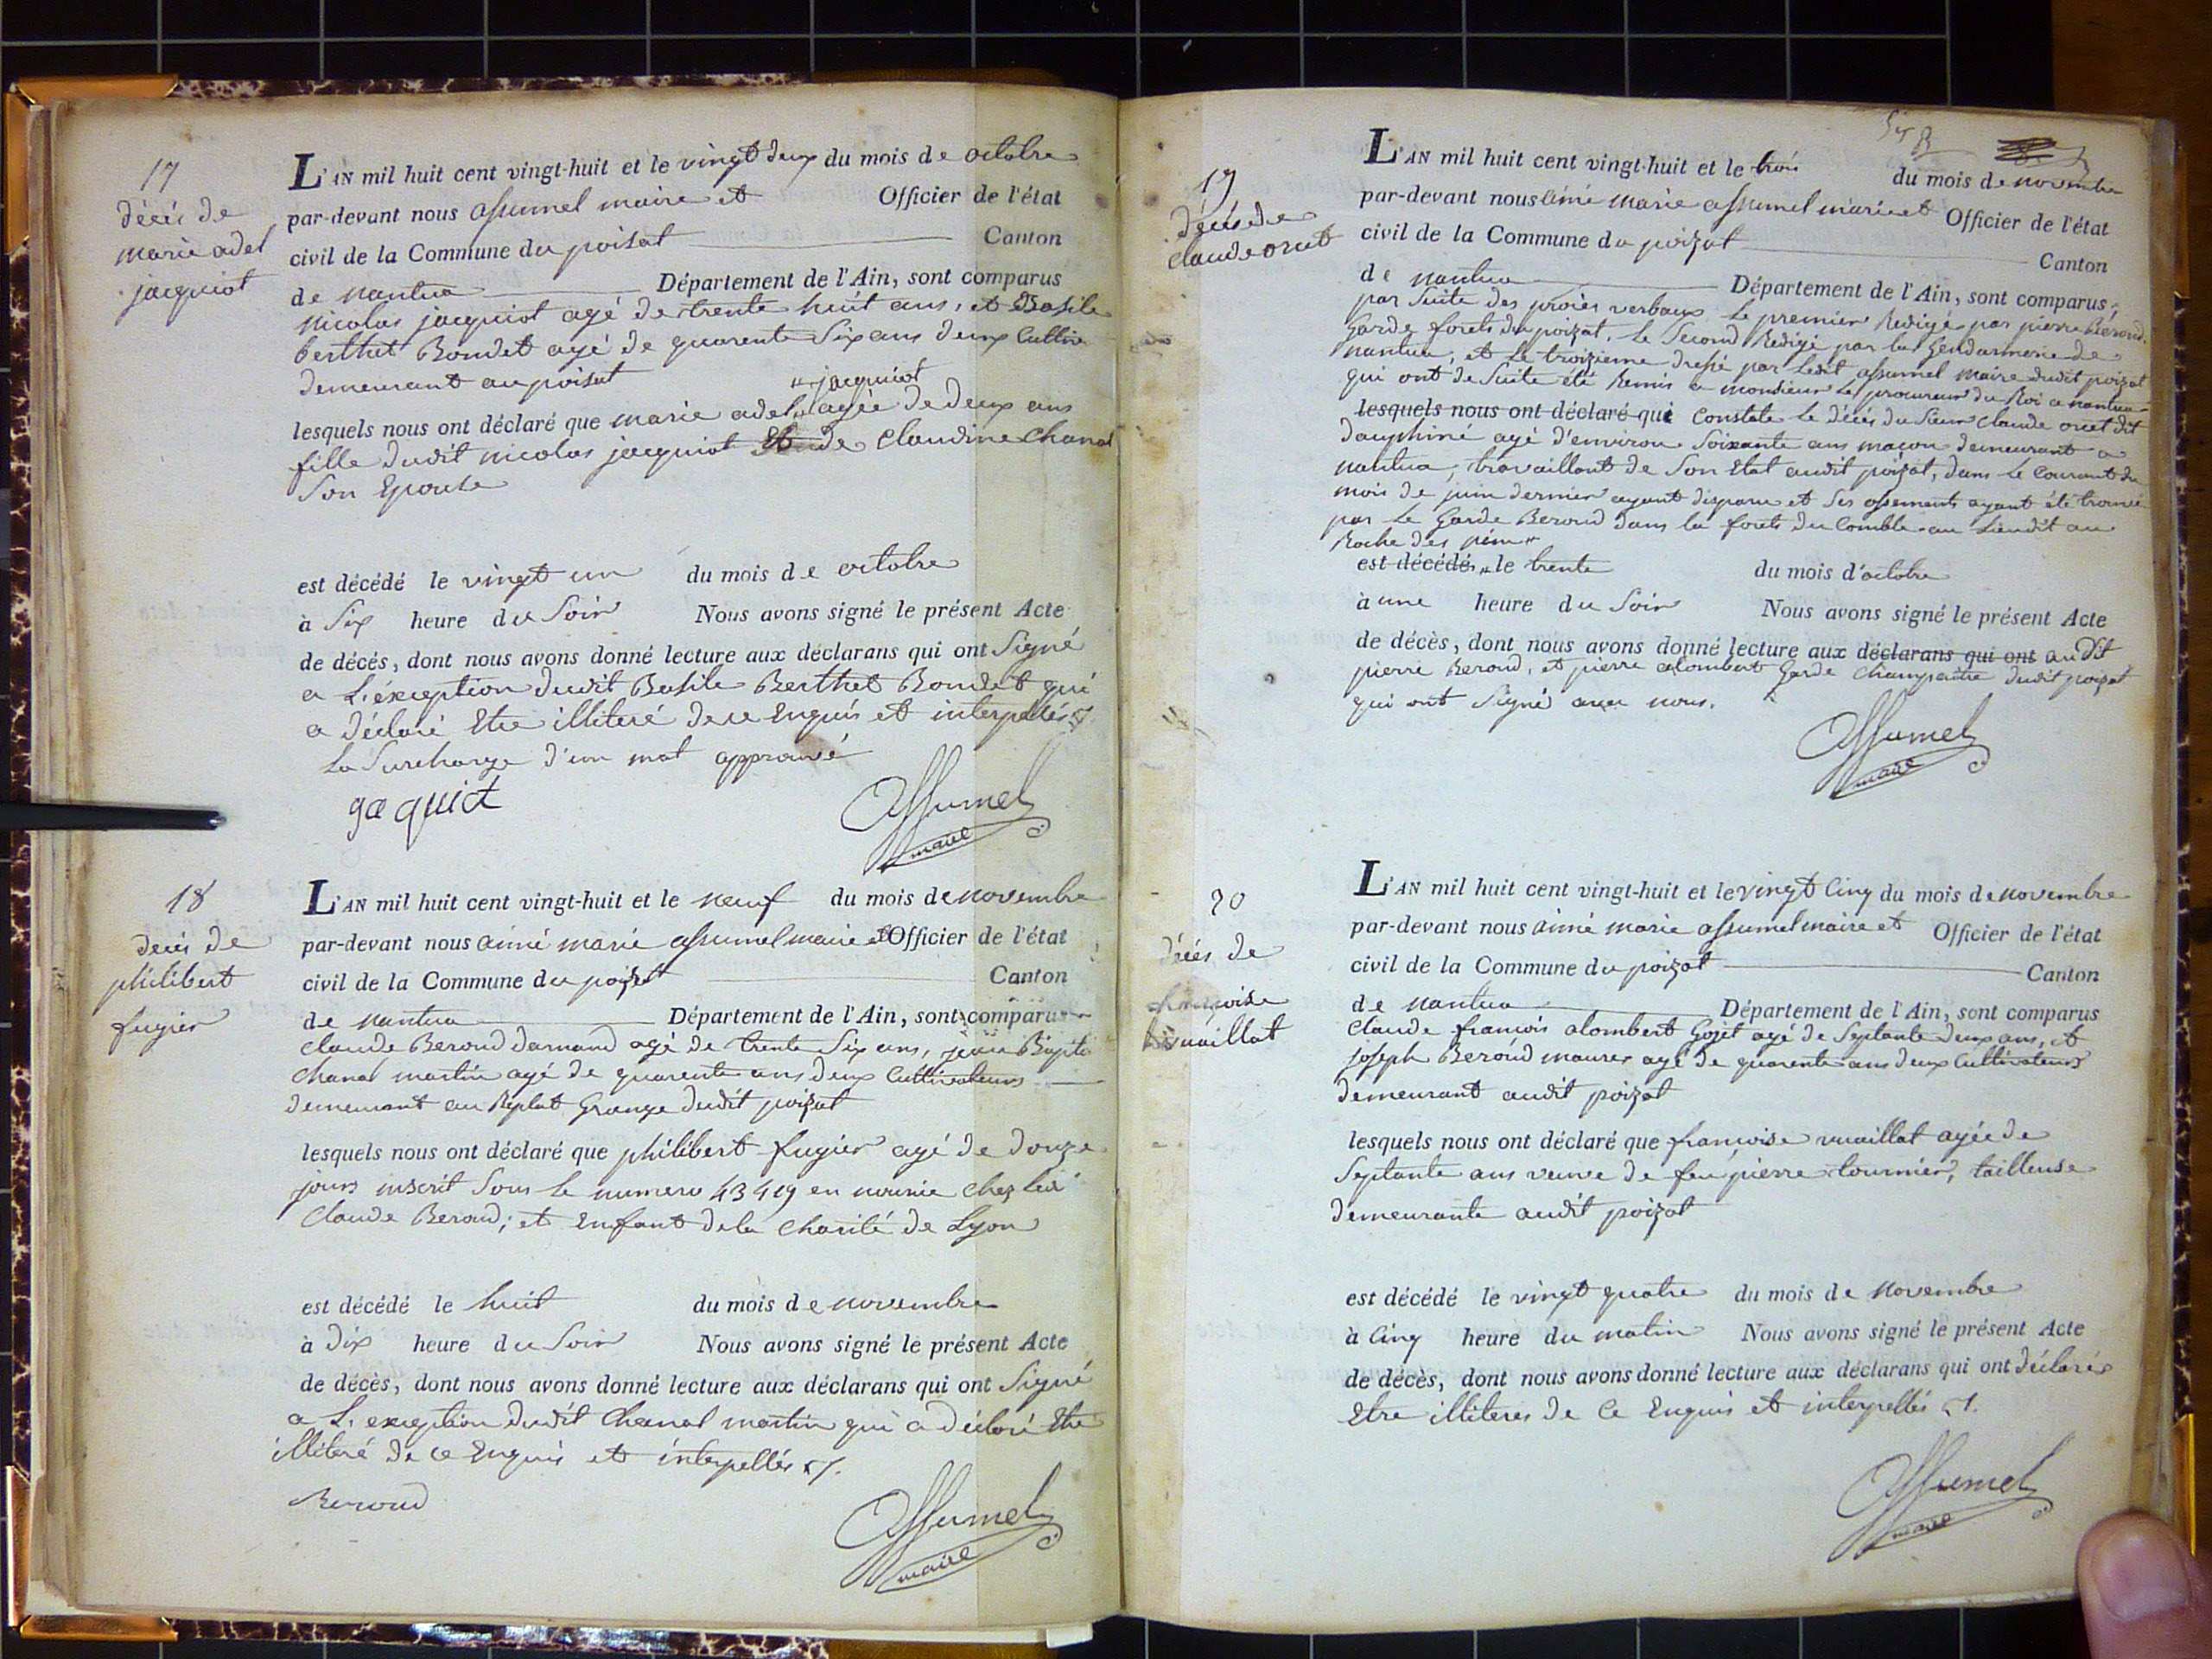 17
décès de
marie adel
jacquiot
L'AN mil huit cent vingt-huit et le vingt deux du mois de octobre
par-devant nous assumel maire et Officier de l'état
civil de la Commune du poisat Canton
de nantua Département de l'Ain, sont comparus
nicolas jacquiot agé de trente huit ans, et Basile
berthet Bondet agé de quarente Six ans deux Cultiv
demeurant au poisat
lesquels nous ont déclaré que marie adel " jacquiot agée de deux ans
fille dudit nicolas jacquiot de Claudine Chanal
Son Epouse
est décédé le vingt un du mois de octobre
à Six heure du Soir Nous avons signé le présent Acte
de décès, dont nous avons donné lecture aux déclarans qui ont Signé
a L'éxception dudit Basile Berthet Bondet qui
a déclaré Etre illiteré de ce Enquis et interpellés
La Surcharge d'un mot approuvé
gaquiot
Assumel
maire
18
décès de
philibert
fugier
L'AN mil huit cent vingt-huit et le neuf du mois de novembre
par-devant nous aimé marie assumel maire et Officier de l'état
civil de la Commune du poizat Canton
de nantua Département de l'Ain, sont comparus
Claude Beroud darnand agé de trente Six ans, jean Bapite
Chanal martin agé de quarente ans deux Cultivateurs
demeurant au Replat Grange dudit poizat
lesquels nous ont déclaré que philibert fugier agé de douze
jours inscrit Sous le numero 43419 en nourice chez Ledi
Claude Beroud; et Enfant de la Charité de Lyon
est décédé le huit du mois de novembre
à dix heure du Soir Nous avons signé le présent Acte
de décès, dont nous avons donné lecture aux déclarans qui ont Signé
a L'exception dudit Chanal martin qui a déclaré Etre
illiteré de ce Enquis et interpellés
Beroud
Assumel
maire
19
décès de
claude orcet
L'AN mil huit cent vingt-huit et le trois du mois de novembre
par-devant nous aimé marie assumel maire et Officier de l'état
civil de la Commune du poizat Canton
de nantua Département de l'Ain, sont comparus,
par Suite des procès verbaux Le premier Redigé par pierre Béroud
Garde forets du poizat, Le Second Redigé par la Gendarmerie de
nantua, et Le troizieme dressé par Ledit assumel maire dudit poizat
qui ont de Suite été Remis a monsieur Le procureur du Roi a nantua
lesquels nous ont déclaré que Constate Le décès du Sieur claude orcet dit
dauphiné agé d'environ Soixante ans maçon demeurant a
nantua, travaillant de Son Etat audit poizat, dans Le Courant du
mois de juin dernier ayant disparu et Ses ossements ayant été trouvé
par Le Garde Beroud dans la forets du Comble au Lieudit au
Roche des
est décédé " le trente du mois d'octobre
à une heure du Soir Nous avons signé le présent Acte
de décès, dont nous avons donné lecture aux déclarans qui ont audit
pierre Beroud, et pierre alombert Garde Champaitre dudit poizat
qui ont Signé avec nous.
Assumel
maire
20
décès de
francoise
vuaillat
L'AN mil huit cent vingt-huit et le vingt Cinq du mois de novembre
par-devant nous aimé marie assumel maire et Officier de l'état
civil de la Commune du poizat Canton
de nantua Département de l'Ain, sont comparus
Claude francois alombert Gojet agé de Septante deux ans, et
joseph Beroud maurex agé de quarente ans deux Cultivateurs
demeurant audit poizat
lesquels nous ont déclaré que francoise vuaillat agée de
Septante ans veuve de feu pierre tournier, tailleuse
demeurante audit poizat
est décédé le vingt quatre du mois de novembre
à Cinq heure du matin Nous avons signé le présent Acte
de décès, dont nous avons donné lecture aux déclarans qui ont déclarés
Etre illiteres de Ce Enquis et interpellés
Assumel
maire